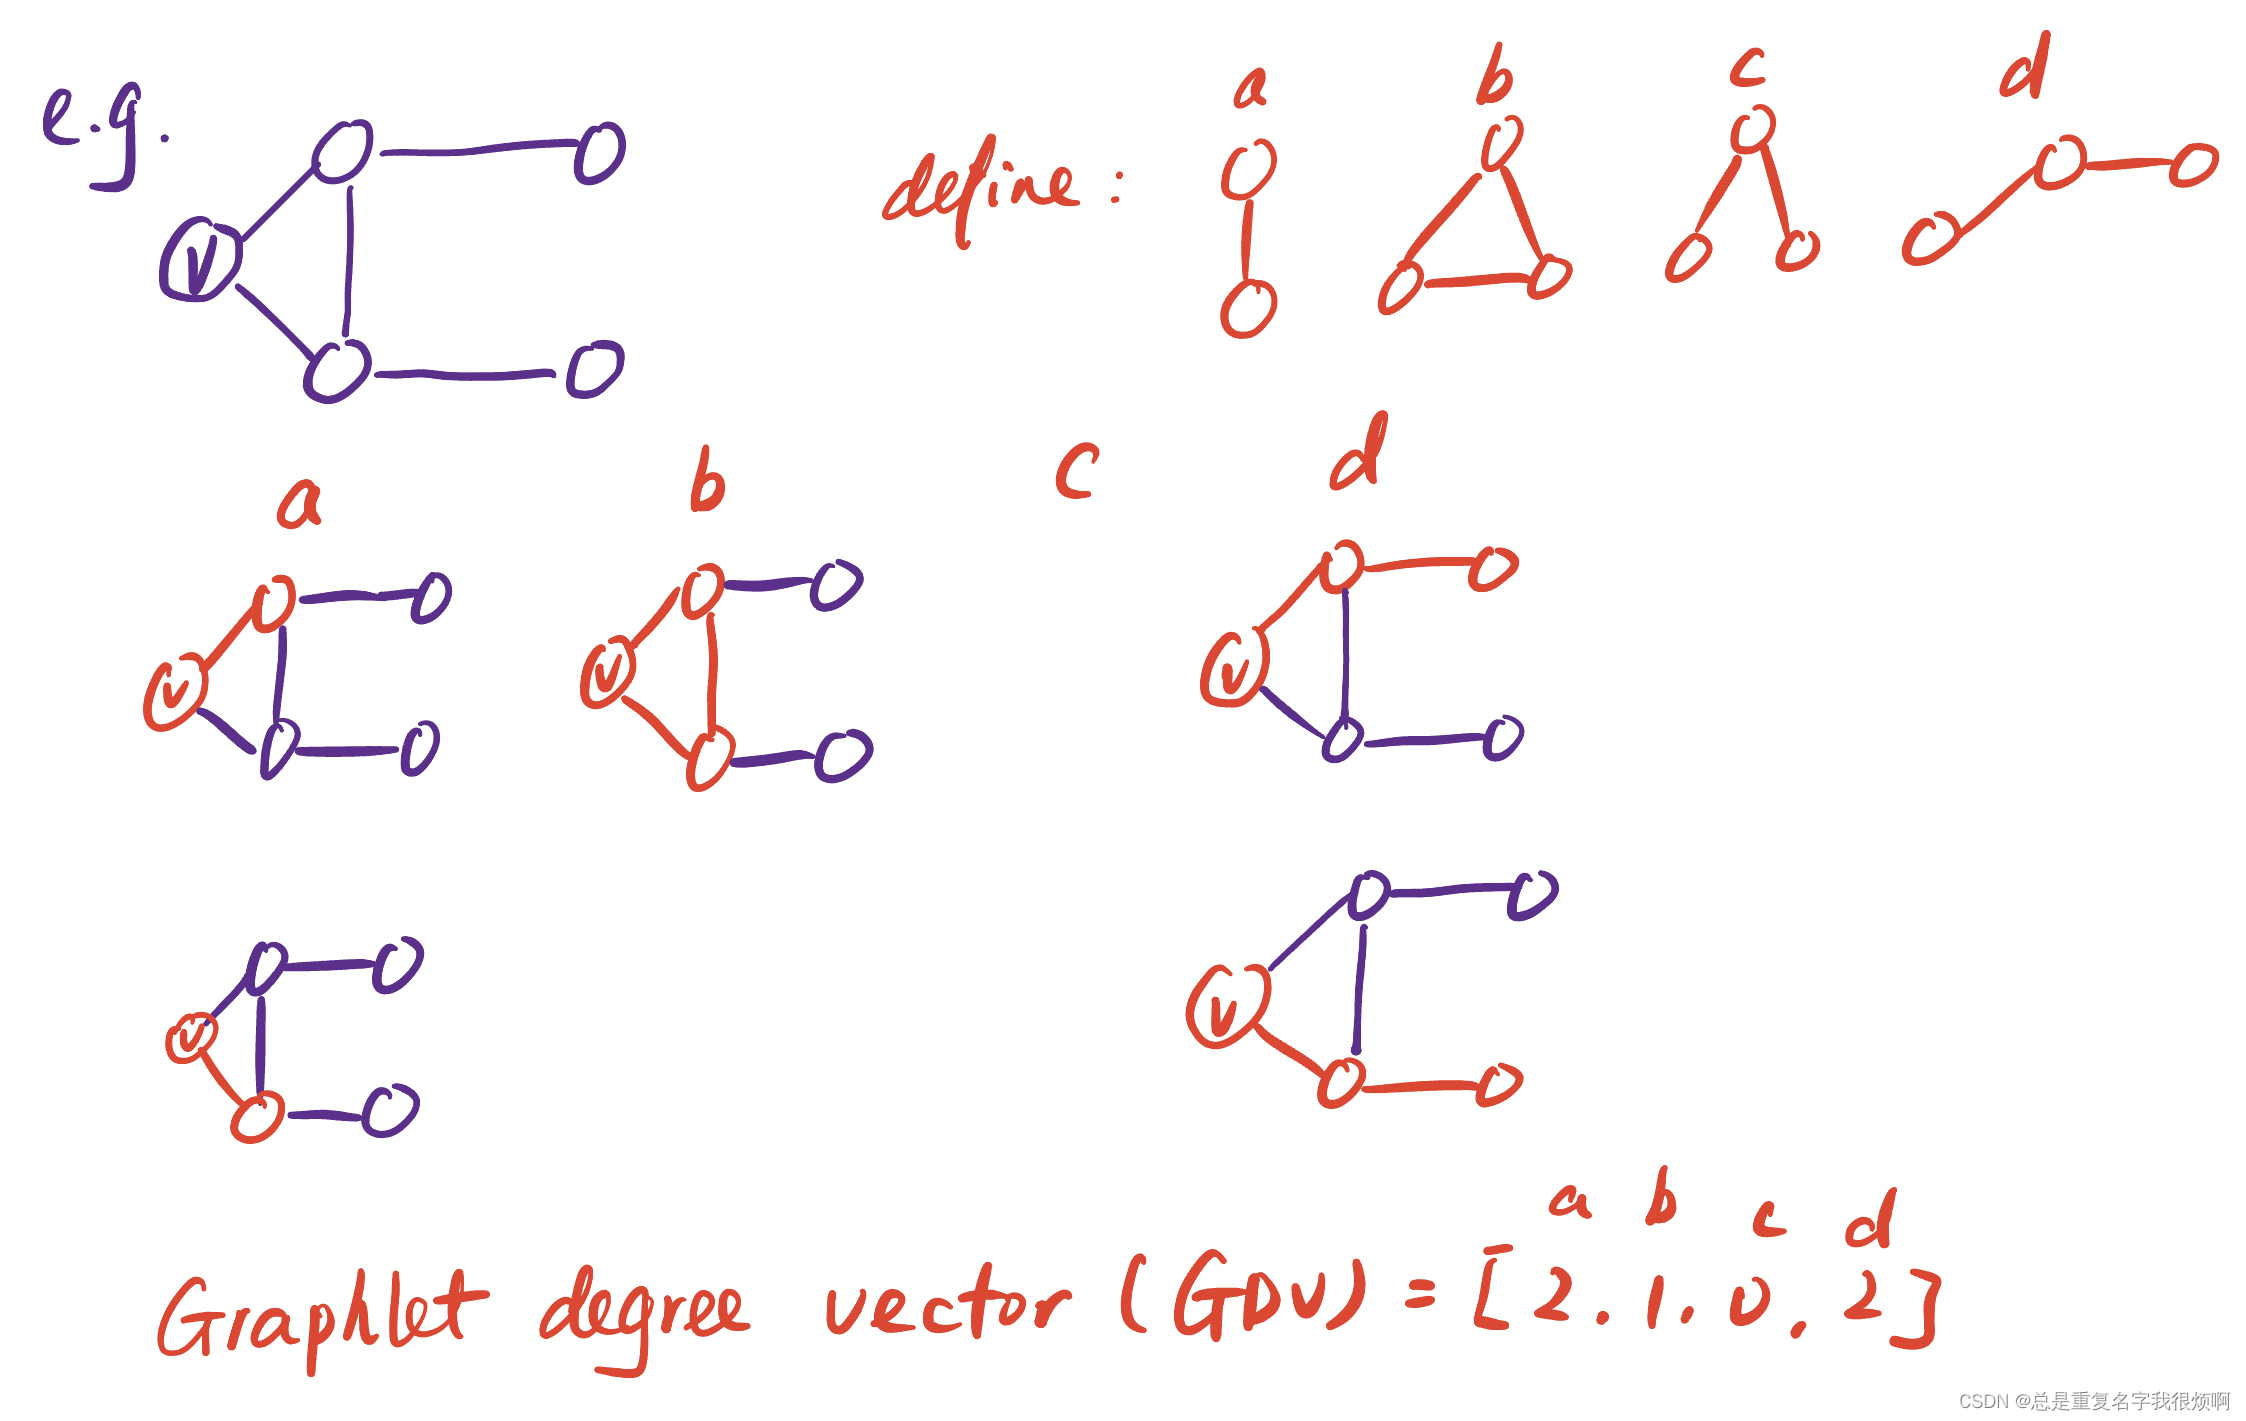 e.g.
define: a b c d
V
a b c d
V V V
V V
a b c d
Graphlet degree vector (GDV) = [2.1.0.2]
CSDN @总是重复名字我很烦啊